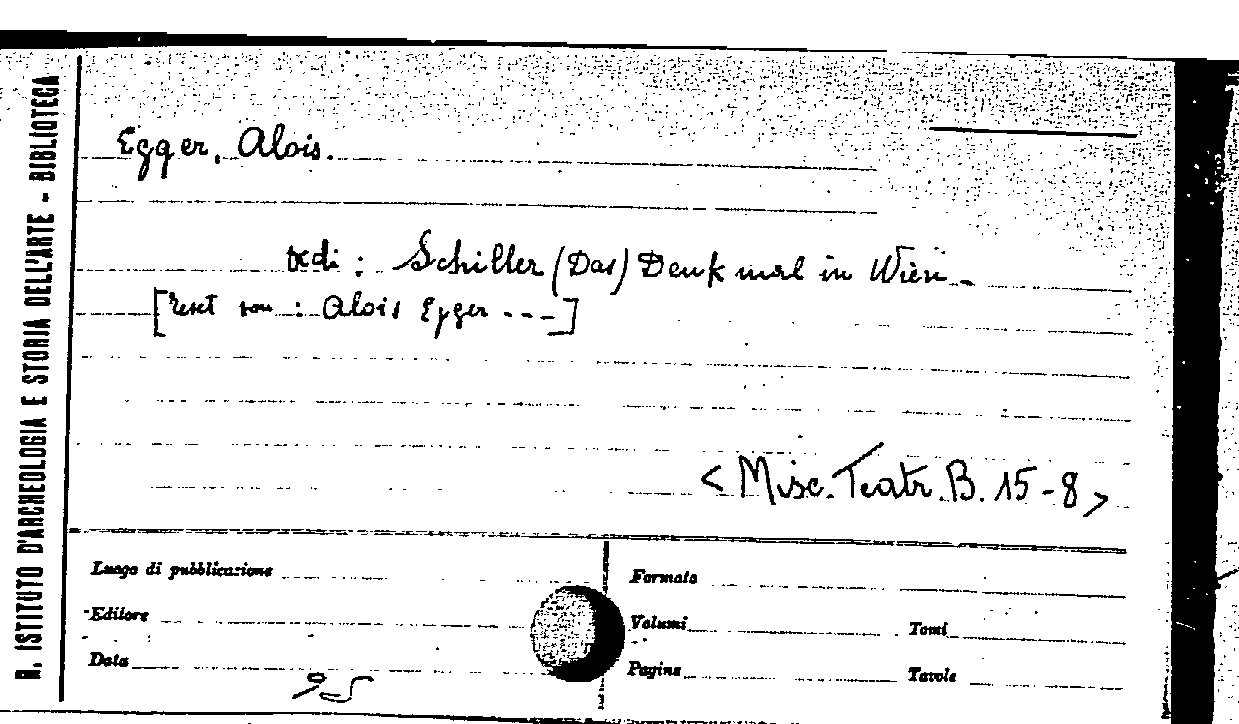 R. ISTITUTO D'ARCHEOLOGIA E STORIA DELL'ARTE - BIBLIOTECA
Egger, Alois.
vedi : Schiller (Das) Denkmal in Wien.
[Text von : Alois Egger ---]
<Misc. Teatr. B. 15-8>
Luogo di pubblicazione
Formato
Editore
Volumi
Tomi
Data
Pagine
Tavole